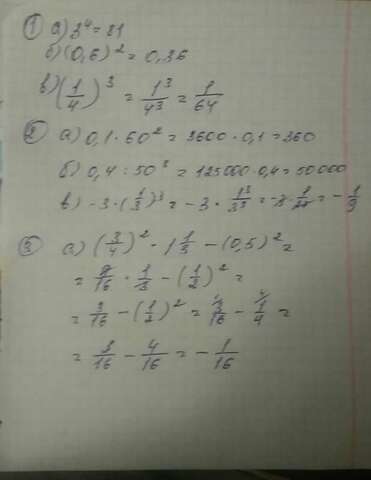 1) а) 3⁴ = 81
б) (0,6)² = 0,36
в) (1/4)³ = 1³/4³ = 1/64
2) а) 0,1 · 60² = 3600 · 0,1 = 360
б) 0,4 · 50³ = 125000 · 0,4 = 50000
в) -3 · (1/3)³ = -3 · 1³/3³ = -3 · 1/27 = -1/9
3) а) (3/4)² · 1 1/3 - (0,5)² =
= 9/16 · 1/3 - (1/2)² =
= 3/16 - (1/2)² = 3/16 - 1/4 =
= 3/16 - 4/16 = - 1/16